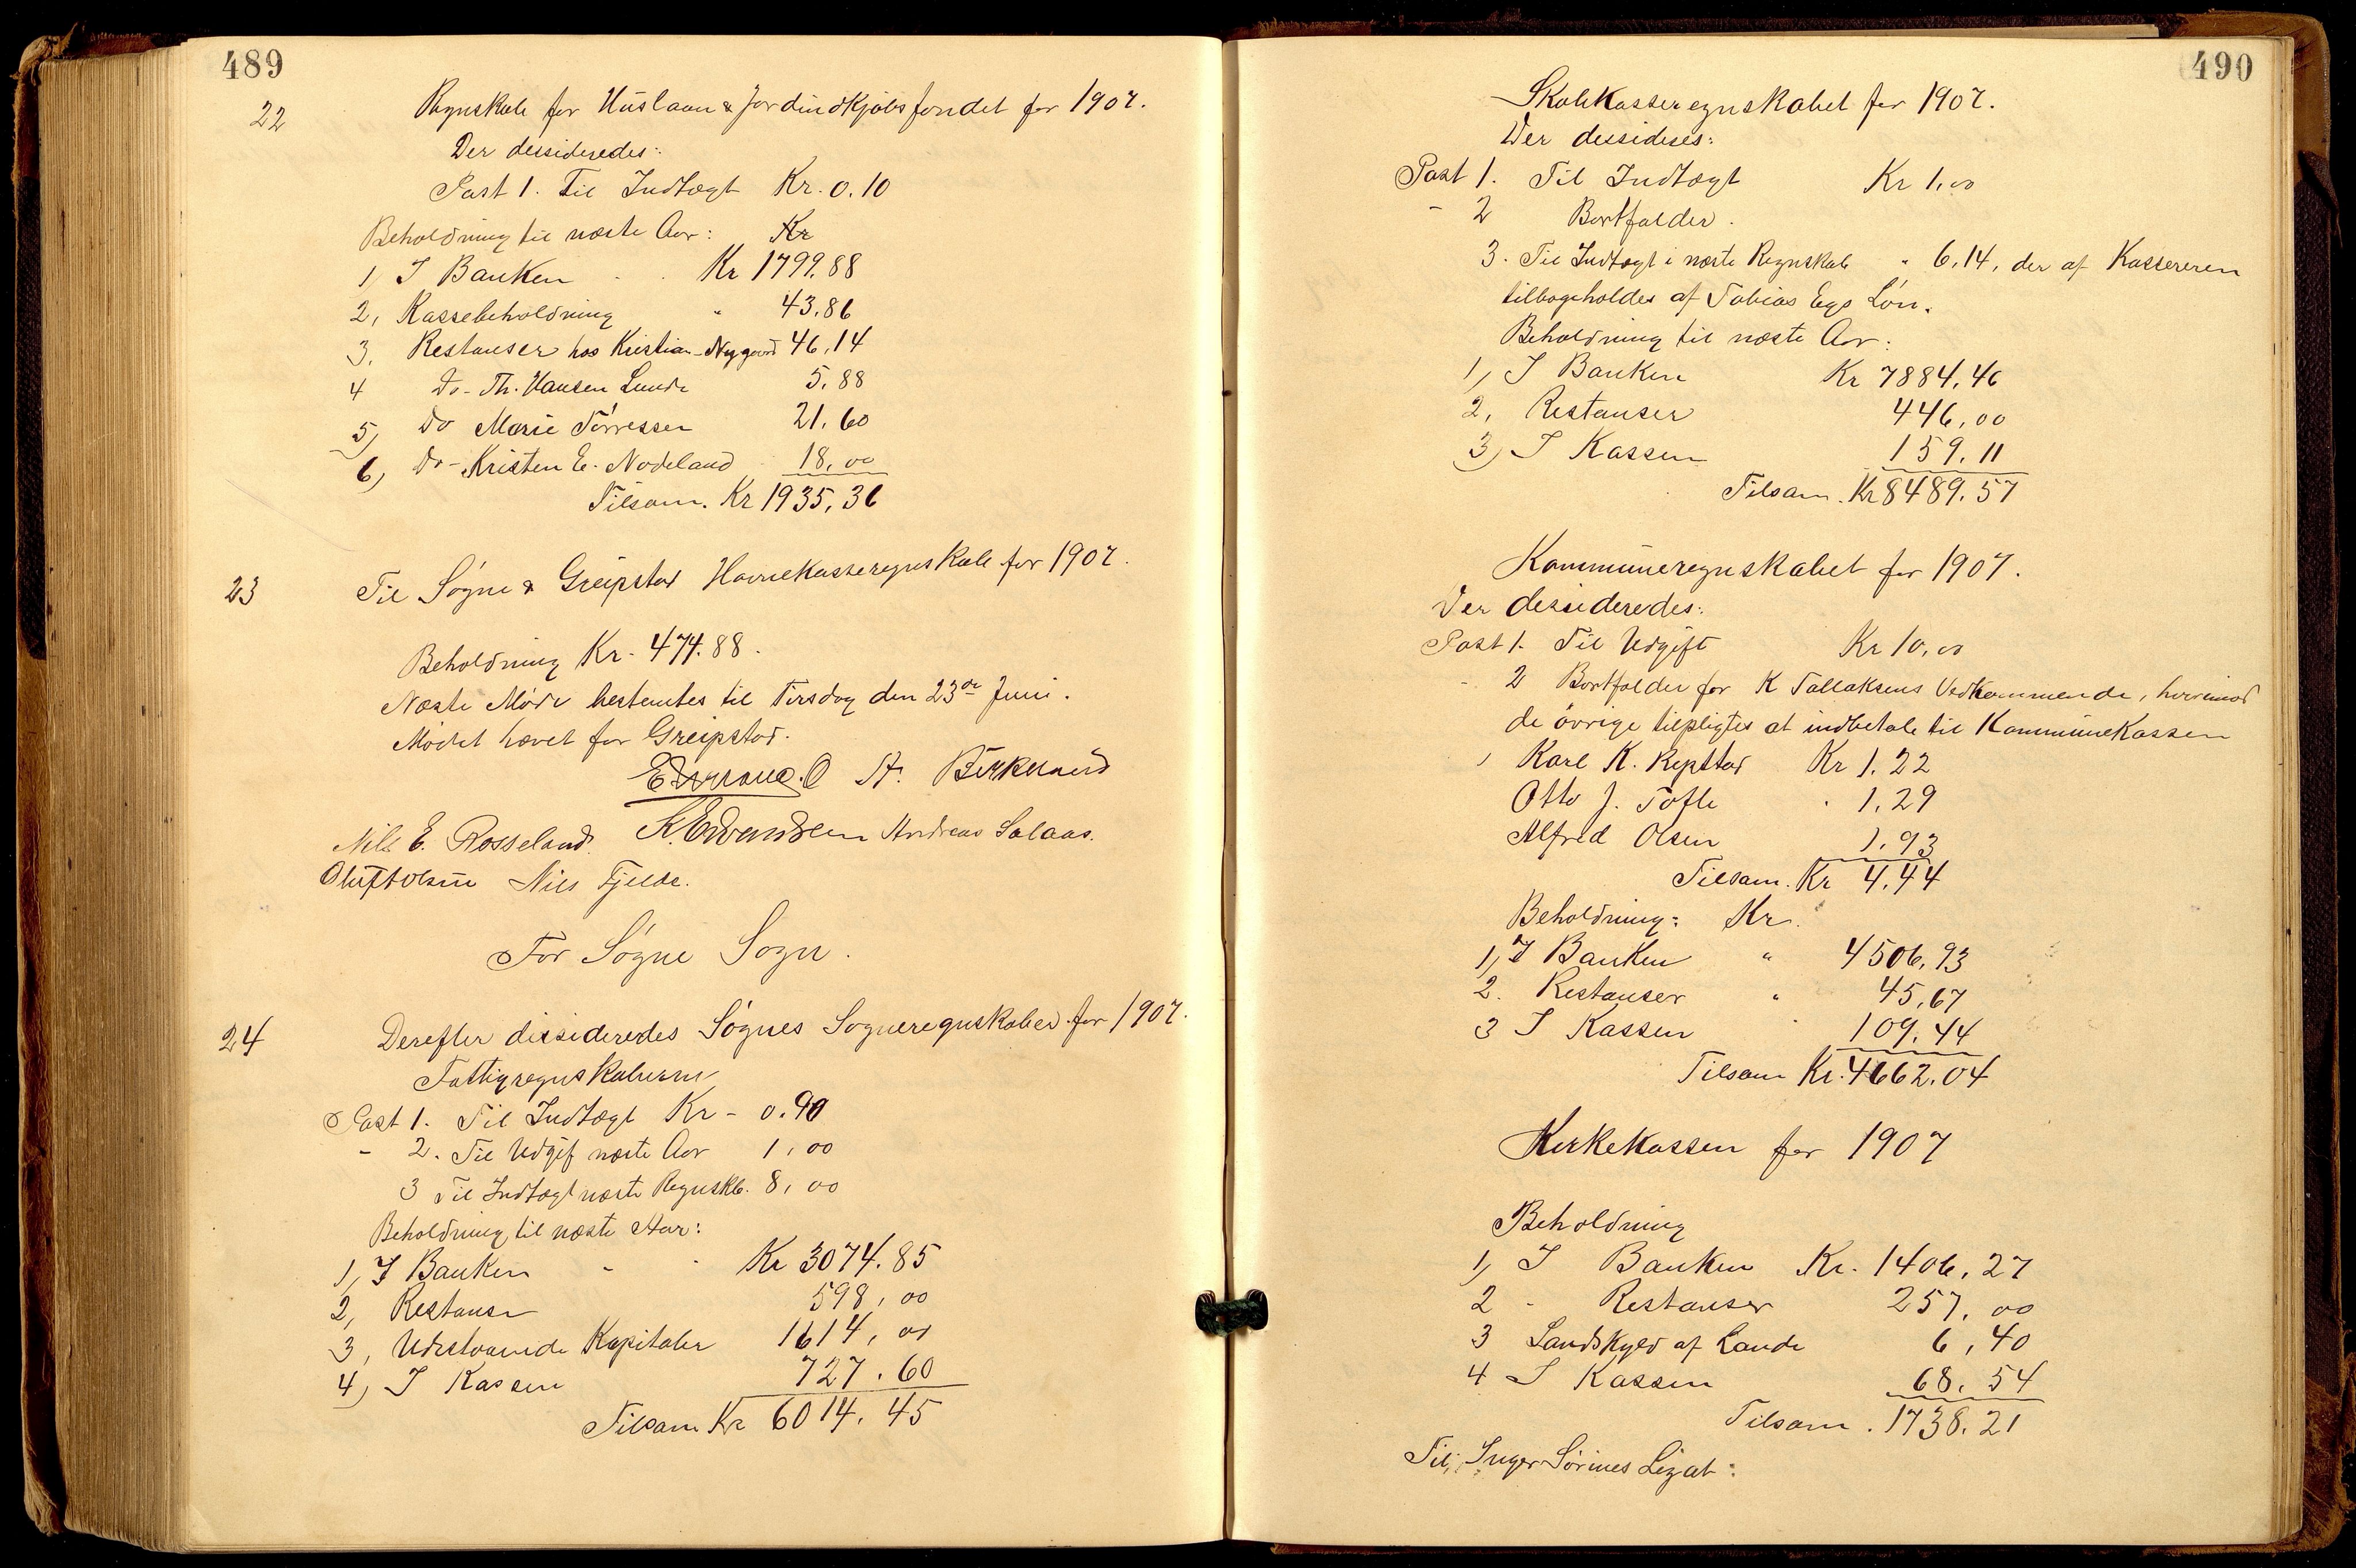 489
22 Regnskab for Huslaan & Jordindkjøbsfondet for 1907.
Der dessideredes:
Post 1. Til Indtægt Kr. 0.10
Beholdning til næste Aar: Kr
1) I Banken Kr 1799.88
2, Kassebeholdning " 43,86
3, Restanser hos Kristian Nygaard 46,14
4 Do - Th. Hansen Lunde 5,88
5) Do Marie Tørressen 21,60
6) Do - Kristen E. Nodeland 18,00
Tilsam. Kr 1935,36
23 Til Søgne & Greipstad Havnekasseregnskab for 1907.
Beholdning Kr. 474.88.
Næste Møde bestemtes til Tirsdag den 23de Juni.
Mødet hævet for Greipstad.
St. Birkeland
Nils E. Rosseland. K. Edvardsen Andreas Salaas.
Oluf Tolsen Nils Fjelde.
For Søgne Sogn.
24 Derefter dissideredes Søgnes Sogneregnskaber for 1907.
Fattigregnskaberne
Post 1. Til Indtægt Kr - 0.90
- 2. Til Udgif næste Aar 1,00
3 Til Indtægt næste Regnskb. 8,00
Beholdning til næste Aar:
1, I Banken - - Kr 3074.85
2, Restanser 598,00
3, Udestaaende Kapitaler 1614,00
4) I Kassen 727.60
Tilsam Kr 6014.45
490
Skolekasseregnskabet for 1907.
Der dessideres:
Post 1. Til Indtægt Kr 1,00
- 2 Bortfalder.
3. Til Indtægt i næste Regnskab " 6,14, der af Kassereren
tilbageholdes af Tobias Eegs Løn.
Beholdning til næste Aar:
1, I Banken Kr 7884,46
2, Restanser 446,00
3) I Kassen 159.11
Tilsam. Kr 8489.57
Kommuneregnskabet for 1907.
Der dessideredes:
Post 1. Til Udgift Kr 10,00
- 2 Bortfalder for K Tallaksens Vedkommende, hvorimod
de øvrige tilpligtes at indbetale til Kommunekassen
Karl K. Repstad Kr 1.22
Otto J. Tofte " 1,29
Alfred Olsen 1,93
Tilsam. Kr 4,44
Beholdning: Kr.
1, I Banken " 4506,93
2. Restanser " 45,67
3 I Kassen 109.44
Tilsam Kr. 4662.04
Kirkekassen for 1907
Beholdning
1, I Banken Kr. 1406,27
2 - Restanser 257,00
3 Landskyld af Lande 6,40
4 I Kassen 68,54
Tilsam. 1738.21
Til Inger Sørines Legat: